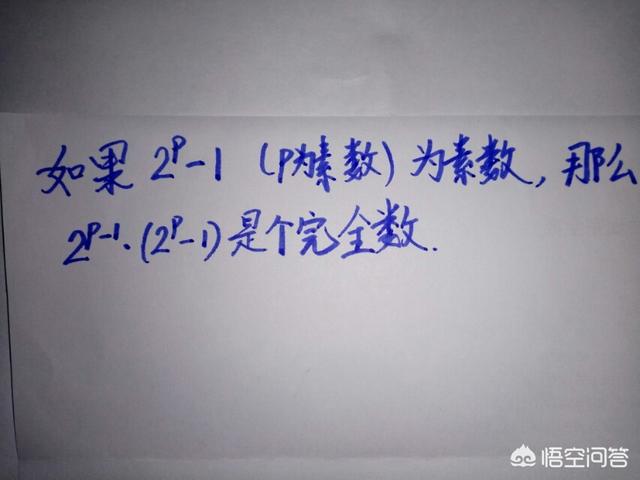 如果 2^p-1 (p为素数) 为素数, 那么
2^{p-1}·(2^p-1) 是个完全数.
悟空问答